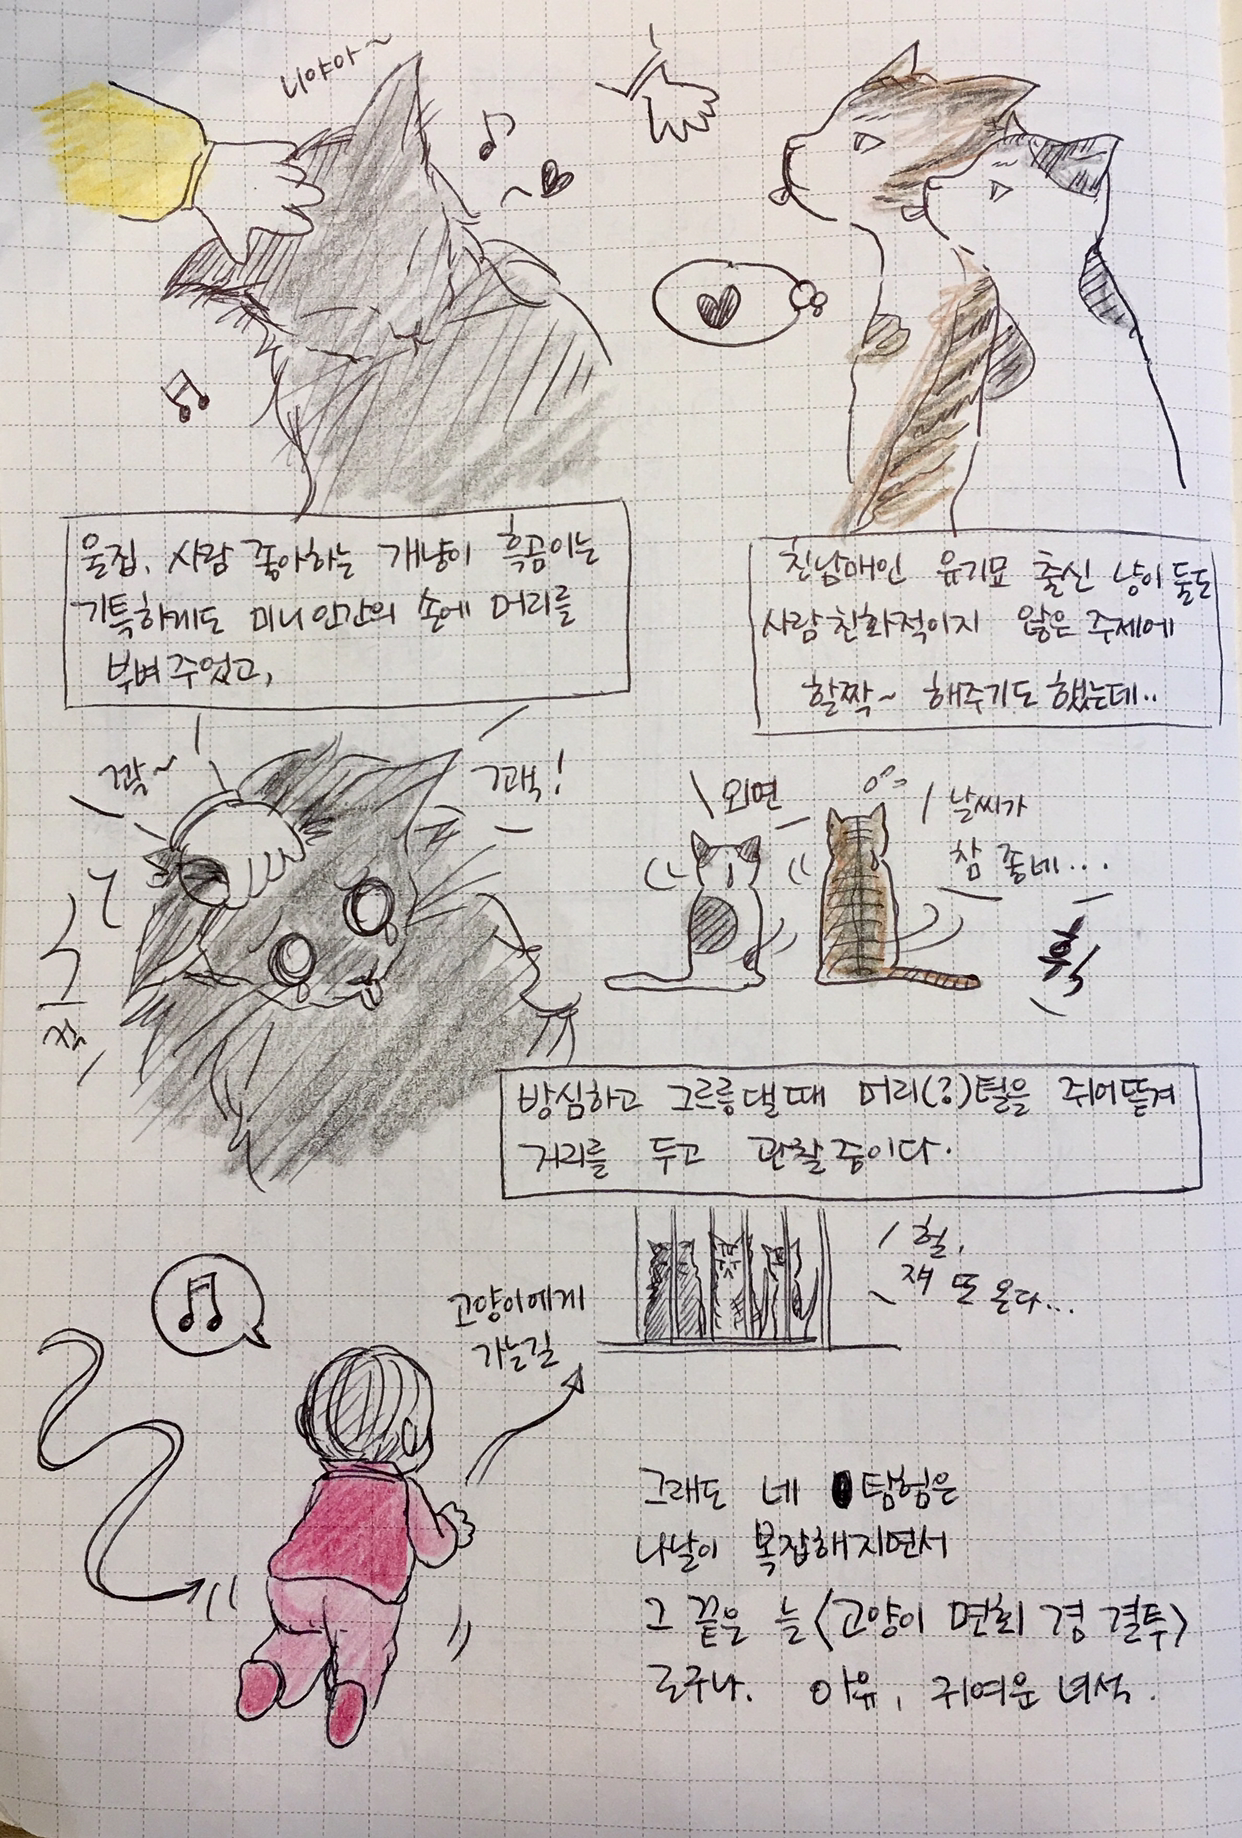 니야아~
울집. 사람 좋아하는 개냥이 흑곰이는
기특하게도 미니인간의 손에 머리를
부벼주었고,
친남매인 유기묘 출신 냥이 둘도
사람친화적이지 않은 주제에
할짝~ 해주기도 했는데..
꽉~
꽥!
외면
날씨가
참 좋네...
휙
방심하고 그르릉댈때 머리(?)털을 쥐어뜯겨
거리를 두고 관찰중이다.
헐,
쟤 또 온다...
고양이에게
가는길
그래도 네 탐험은
나날이 복잡해지면서
그 끝은 늘 <고양이 면회 겸 결투>
로구나. 아유, 귀여운 녀석.